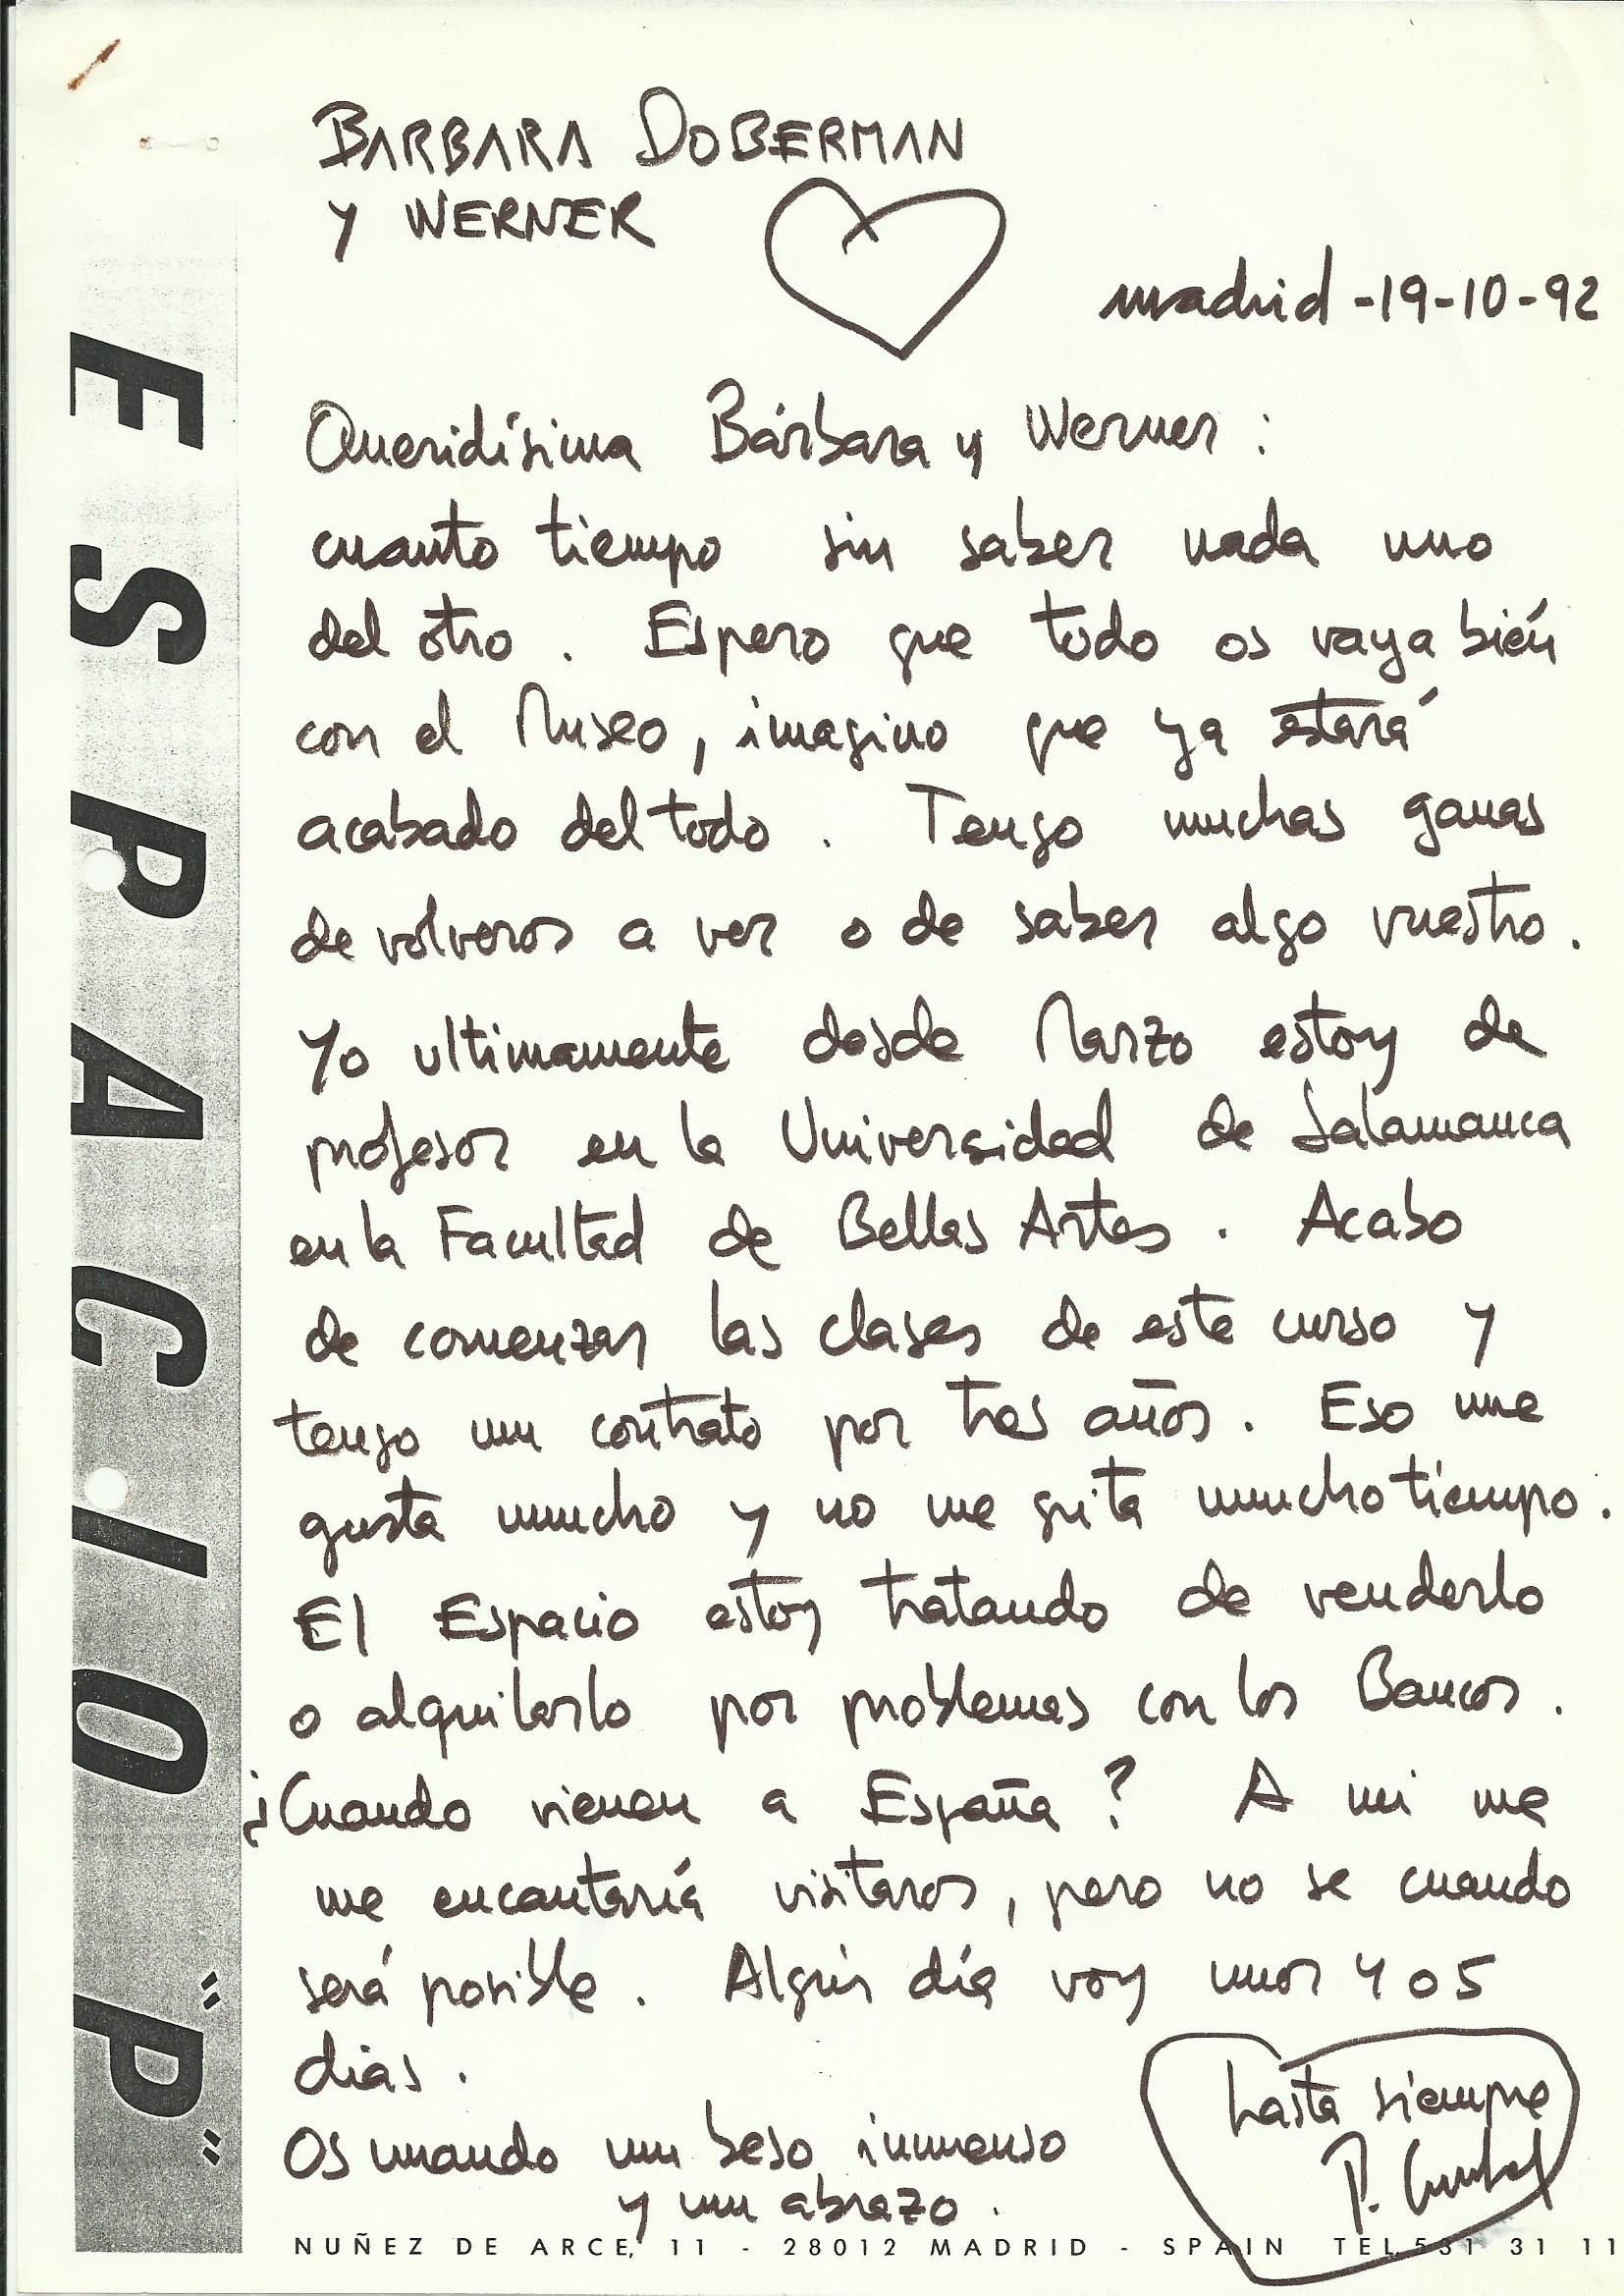 BARBARA DOBERMAN
Y WERNER
madrid -19-10-92
Queridísima Bárbara y Werner :
cuanto tiempo sin saber nada uno
del otro . Espero que todo os vaya bién
con el Museo, imagino que ya estará
acabado del todo . Tengo muchas ganas
de volveros a ver o de saber algo vuestro .
Yo ultimamente desde Marzo estoy de
profesor en la Universidad de Salamanca
en la Facultad de Bellas Artes . Acabo
de comenzar las clases de este curso y
tengo un contrato por tres años . Eso me
gusta mucho y no me quita mucho tiempo .
El Espacio estoy tratando de venderlo
o alquilarlo por problemas con los Bancos .
¿Cuando vienen a España ? A mi me
me encantaría visitaros, pero no se cuando
será posible . Algún día voy unos 4 o 5
dias .
Os mando un beso inmenso
y un abrazo .
hasta siempre
P.
NUÑEZ DE ARCE, 11 - 28012 MADRID - SPAIN TEL. 531 31 11
ESPACIO "P"